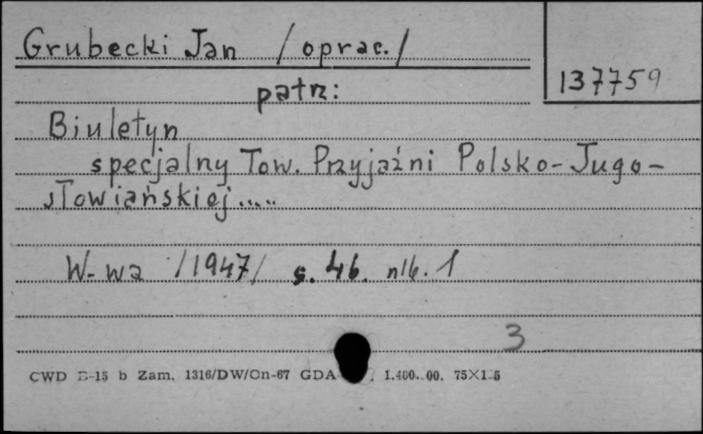 Grubecki Jan /oprac./
137759
patrz:
Biuletyn
specjalny Tow. Przyjaźni Polsko-Jugo-
słowiańskiej.....
W-wa /1947/ s. 46. nlb. 1
3
CWD B-15 b Zam. 1316/DW/On-67 GDA